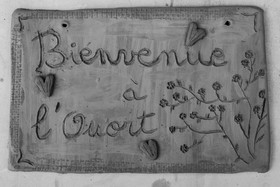 Bienvenue
à
l'Ouort